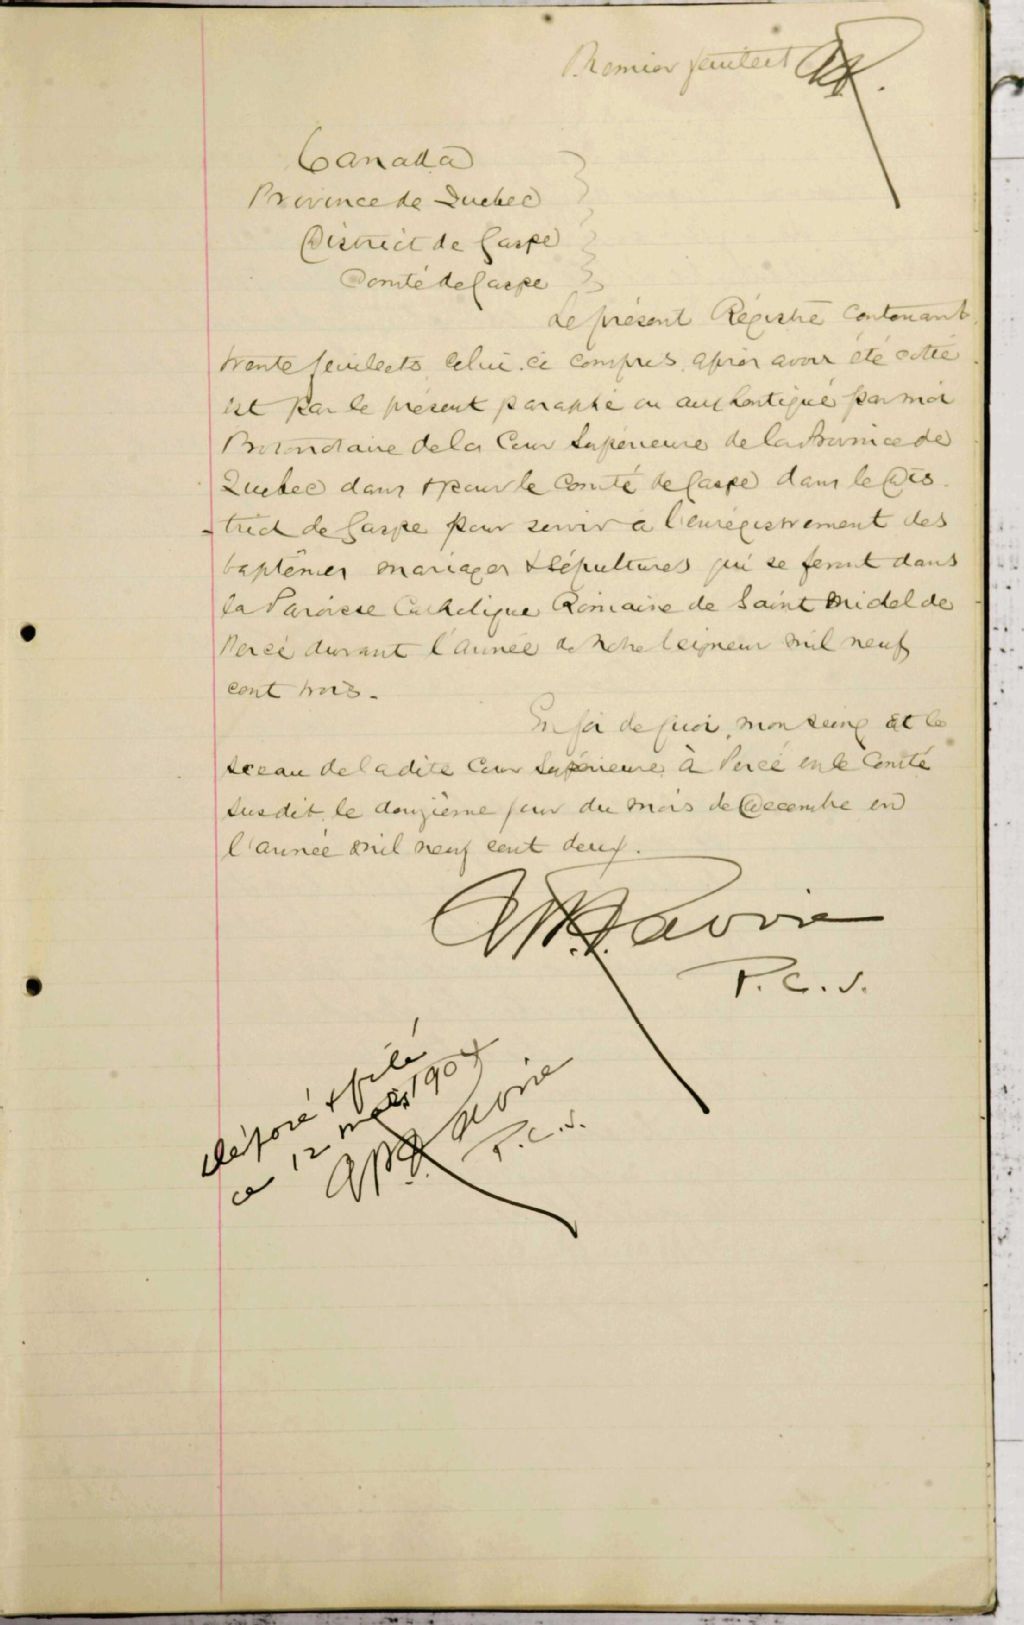 Premier feuillet
Canada
Province de Quebec
District de Gaspe
Comté de Gaspe
Le présent Régistre contenant
trente feuillets, celui-ci compris, après avoir été cotté
est par le présent paraphé ou authentiqué par moi
Protonotaire de la Cour Supérieure de la Province de
Quebec dans & pour le Comté de Gaspe dans le Dis-
trict de Gaspe pour servir à l'enrégistrement des
baptêmes mariages & sépultures qui se feront dans
la Paroisse Catholique Romaine de Saint Michel de
Percé durant l'année de Notre Seigneur mil neuf
cent trois.
En foi de quoi, mon seing et le
sceau de la dite Cour Supérieure, à Percé en le Comté
susdit, le douzième jour du mois de Decembre en
l'année mil neuf cent deux.
Lavoie
P.C.S.
Déposé & filé
ce 12 mars 1904
Lavoie
P.C.S.